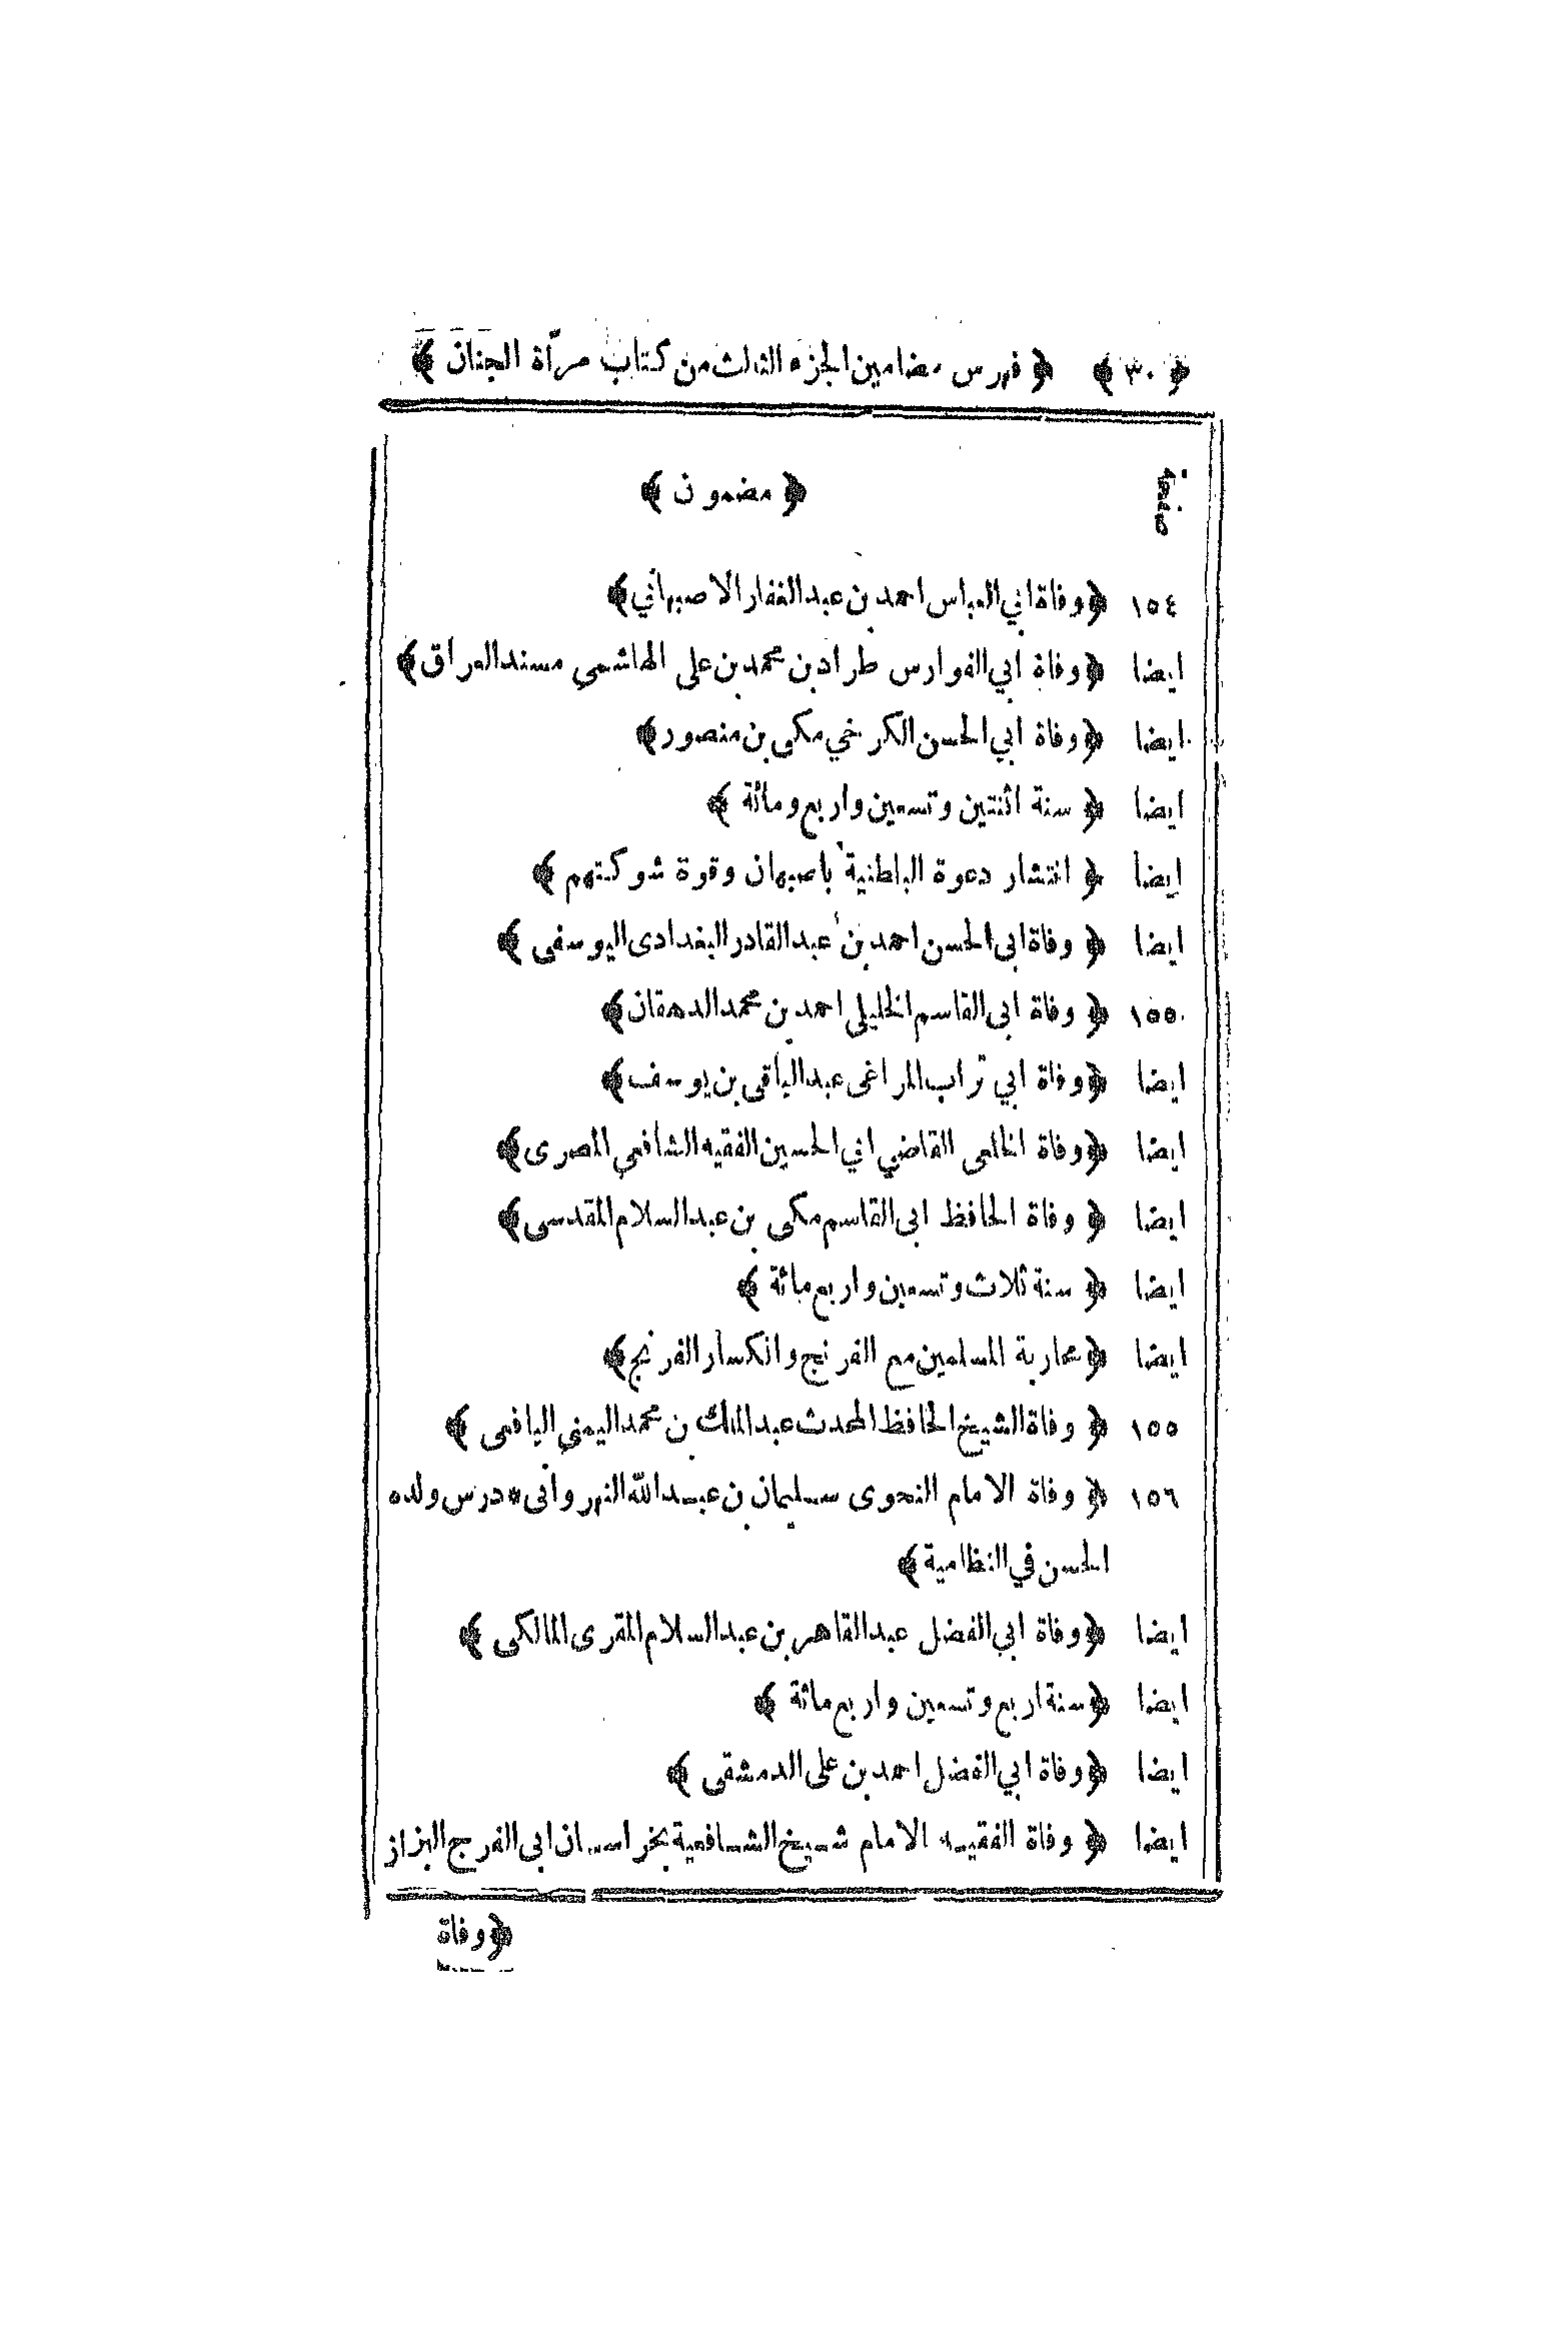 ﴿ ٣٠ ﴾ ﴿ فهرس مضامين الجزء الثالث من كتاب مرآة الجنان ﴾
صفحة ﴿ مضمون ﴾
١٥٤ ﴿ وفاة ابي العباس احمد بن عبد الغفار الاصبهاني ﴾
ايضا ﴿ وفاة ابي الفوارس طراد بن محمد بن على الهاشمي مسند العراق ﴾
ايضا ﴿ وفاة ابي الحسن الكرخي مكي بن منصور ﴾
ايضا ﴿ سنة اثنتين وتسعين واربع ومائة ﴾
ايضا ﴿ انتشار دعوة الباطنية باصبهان وقوة شوكتهم ﴾
ايضا ﴿ وفاة ابى الحسن احمد بن عبد القادر البغدادى اليوسفى ﴾
١٥٥ ﴿ وفاة ابى القاسم الخليلى احمد بن محمد الدهقان ﴾
ايضا ﴿ وفاة ابي تراب المراغى عبد الباقى بن يوسف ﴾
ايضا ﴿ وفاة الخلعى القاضي ابي الحسين الفقيه الشافعي المصرى ﴾
ايضا ﴿ وفاة الحافظ ابى القاسم مكى بن عبد السلام المقدسى ﴾
ايضا ﴿ سنة ثلاث وتسعين واربع مائة ﴾
ايضا ﴿ محاربة المسلمين مع الفرنج وانكسار الفرنج ﴾
١٥٥ ﴿ وفاة الشيخ الحافظ المحدث عبد الملك بن محمد اليمني اليافعى ﴾
١٥٦ ﴿ وفاة الامام النحوى سليمان بن عبد الله النهروانى * درس ولده
الحسن في النظامية ﴾
ايضا ﴿ وفاة ابي الفضل عبد القاهر بن عبد السلام المقرى المالكى ﴾
ايضا ﴿ سنة اربع وتسعين واربع مائة ﴾
ايضا ﴿ وفاة ابي الفضل احمد بن على الدمشقى ﴾
ايضا ﴿ وفاة الفقيه الامام شيخ الشافعية بخراسان ابى الفرج البزاز
﴿ وفاة